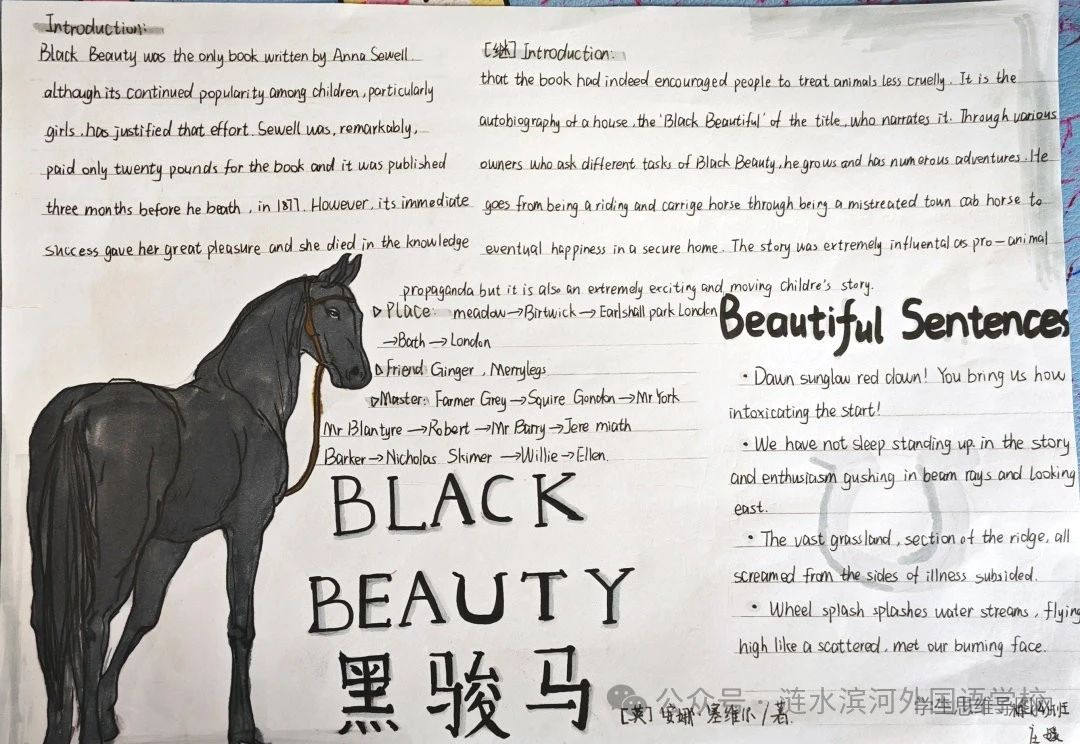 Introduction:
Black Beauty was the only book written by Anna Sewell
although its continued popularity among children, particularly
girls, has justified that effort. Sewell was, remarkably,
paid only twenty pounds for the book and it was published
three months before he beath, in 1877. However, its immediate
success gave her great pleasure and she died in the knowledge
[继] Introduction:
that the book had indeed encouraged people to treat animals less cruelly. It is the
autobiography of a house, the 'Black Beautiful' of the title, who narrates it. Through various
owners who ask different tasks of Black Beauty, he grows and has numorous adventures. He
goes from being a riding and carrige horse through being a mistreated town cab horse to
eventual happiness in a secure home. The story was extremely influental as pro-animal
propaganda but it is also an extremely exciting and moving childre's story.
Place: meadow→Birtwick→Earlshall park London
→Bath→London
Friend Ginger, Merrylegs
Master: Farmer Grey→Squire Gondon→Mr York
Mr Blantyre→Robert→Mr Barry→Jere miath
Barker→Nicholas Skimer→Willie→Ellen.
BLACK
BEAUTY
黑骏马
[英] 安娜·塞维尔/著
Beautiful Sentences
·Dawn sunglow red down! You bring us how
intoxicating the start!
·We have not sleep standing up in the story
and enthusiasm gushing in beam rays and Looking
east.
·The vast grassland, section of the ridge, all
screamed from the sides of illness subsided.
·Wheel splash splashes water streams, flying
high like a scattered, met our burning face.
公众号·涟水滨河外国语学校
学生思维导图